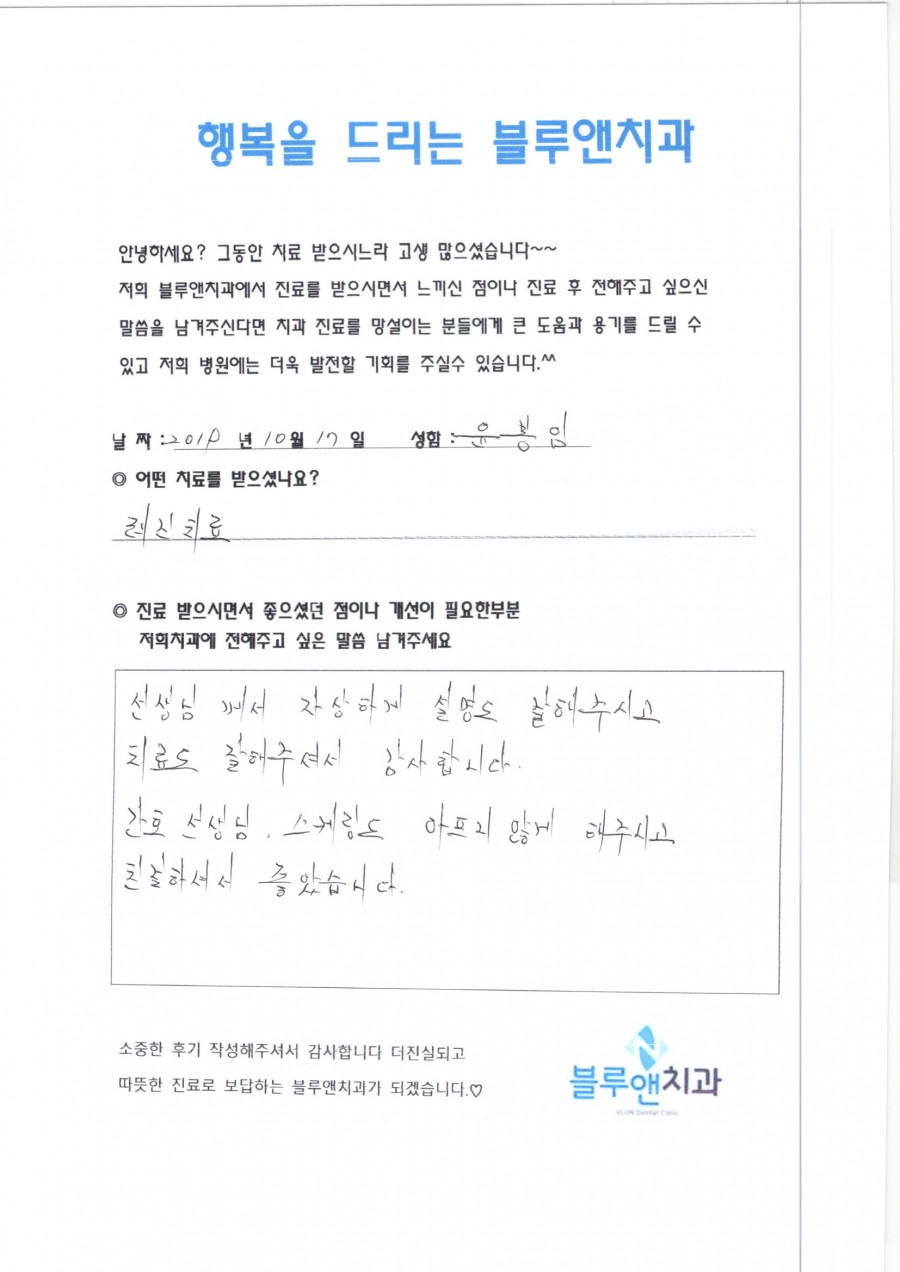 행복을 드리는 블루앤치과
안녕하세요? 그동안 치료 받으시느라 고생 많으셨습니다~~
저희 블루앤치과에서 진료를 받으시면서 느끼신 점이나 진료 후 전해주고 싶으신
말씀을 남겨주신다면 치과 진료를 망설이는 분들에게 큰 도움과 용기를 드릴 수
있고 저희 병원에는 더욱 발전할 기회를 주실수 있습니다.^^
날 짜 : 년 10월 17 일 성함 :
◎ 어떤 치료를 받으셨나요?
레진치료
◎ 진료 받으시면서 좋으셨던 점이나 개선이 필요한부분
저희치과에 전해주고 싶은 말씀 남겨주세요
선생님 께서 자상하게 설명도 잘해주시고
치료도 잘해주셔서 감사합니다.
간호 선생님, 스케링도 아프지 않게 해주시고
친절하셔서 좋았습니다.
소중한 후기 작성해주셔서 감사합니다 더진실되고
따뜻한 진료로 보답하는 블루앤치과가 되겠습니다.♡
블루앤치과